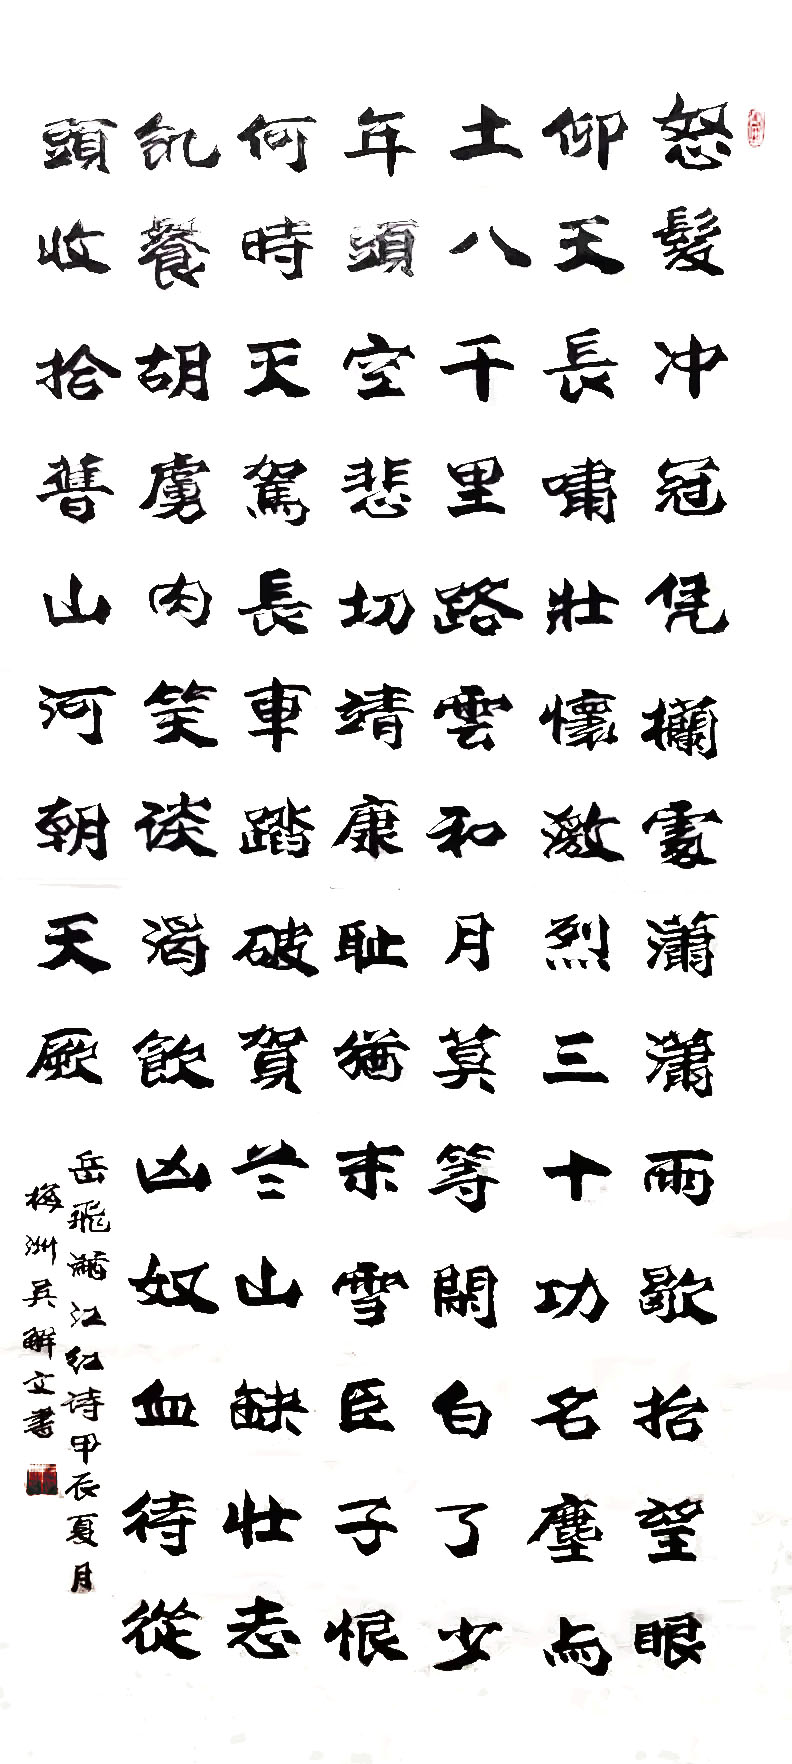 怒髮冲冠凭攔處瀟瀟雨歇抬望眼
仰天長嘯壯懷激烈三十功名塵与
土八千里路雲和月莫等閑白了少
年頭空悲切靖康耻猶未雪臣子恨
何時灭駕長車踏破賀兰山缺壮志
飢餐胡虜肉笑谈渴飲凶奴血待從
頭收拾舊山河朝天厥
岳飛滿江红诗甲辰夏月
梅洲吴解文書